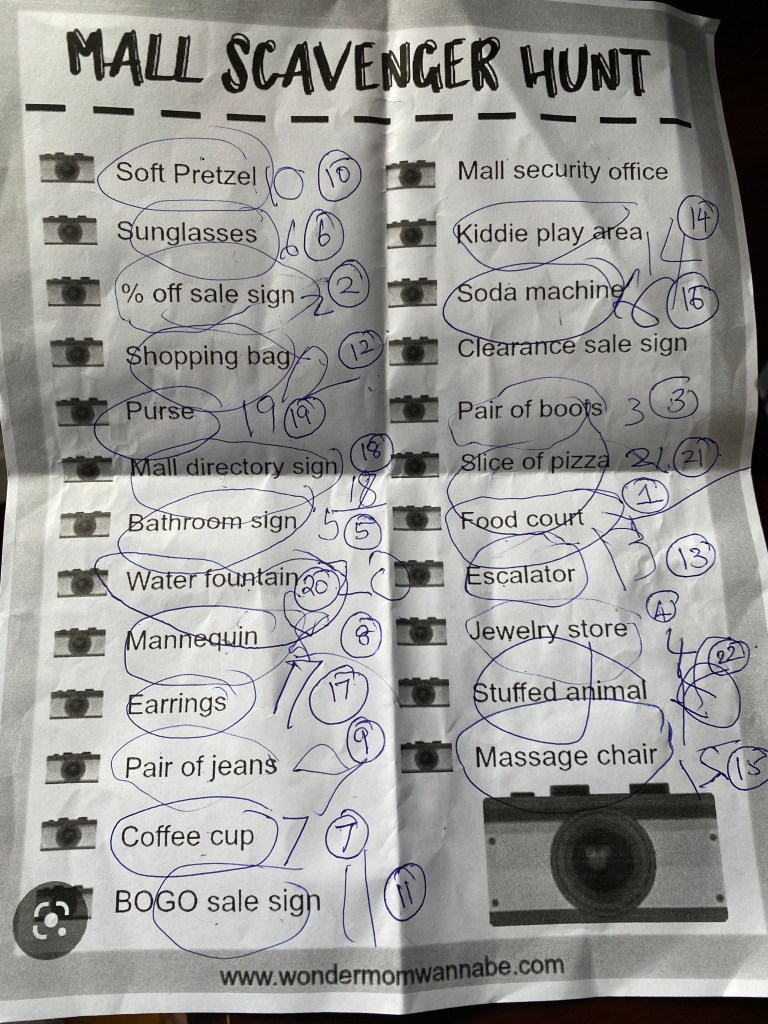 MALL SCAVENGER HUNT
Soft Pretzel 10 10
Sunglasses 6 6
% off sale sign 2 2
Shopping bag 12 12
Purse 19 19
Mall directory sign 18
18
Bathroom sign 5 5
Water fountain 20
Mannequin 8 8
Earrings 17 17
Pair of jeans 9
Coffee cup 7 7
BOGO sale sign 11 11
Mall security office
Kiddie play area 14 14
Soda machine 16 16
Clearance sale sign
Pair of boots 3 3
Slice of pizza 21 21
Food court 1
Escalator 13 13
Jewelry store 4
4
Stuffed animal 22
Massage chair 15 15
www.wondermomwannabe.com